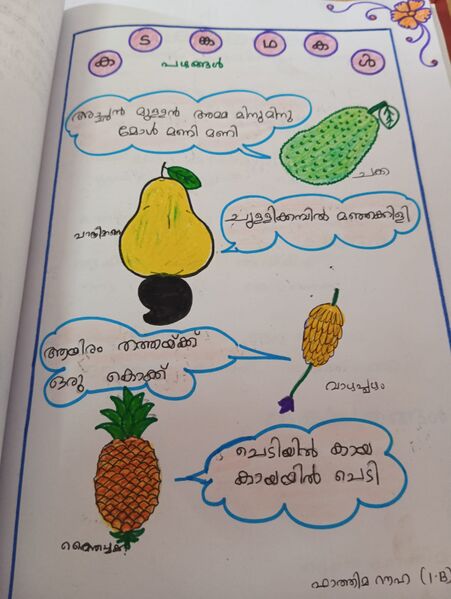 ക ട ങ്ക ഥ ക ൾ
പഴങ്ങൾ
അച്ഛൻ മുള്ളൻ അമ്മ മിനുമിനു
മോൾ മണി മണി
ചക്ക
ചുള്ളിക്കമ്പിൽ മഞ്ഞക്കിളി
ആയിരം തത്തയ്ക്ക്
ഒരു കൊക്ക്
വാഴപ്പഴം
ചെടിയിൽ കായ
കായയിൽ ചെടി
കൈതച്ചക്ക
ഫാത്തിമ നൗഹ (1-B)